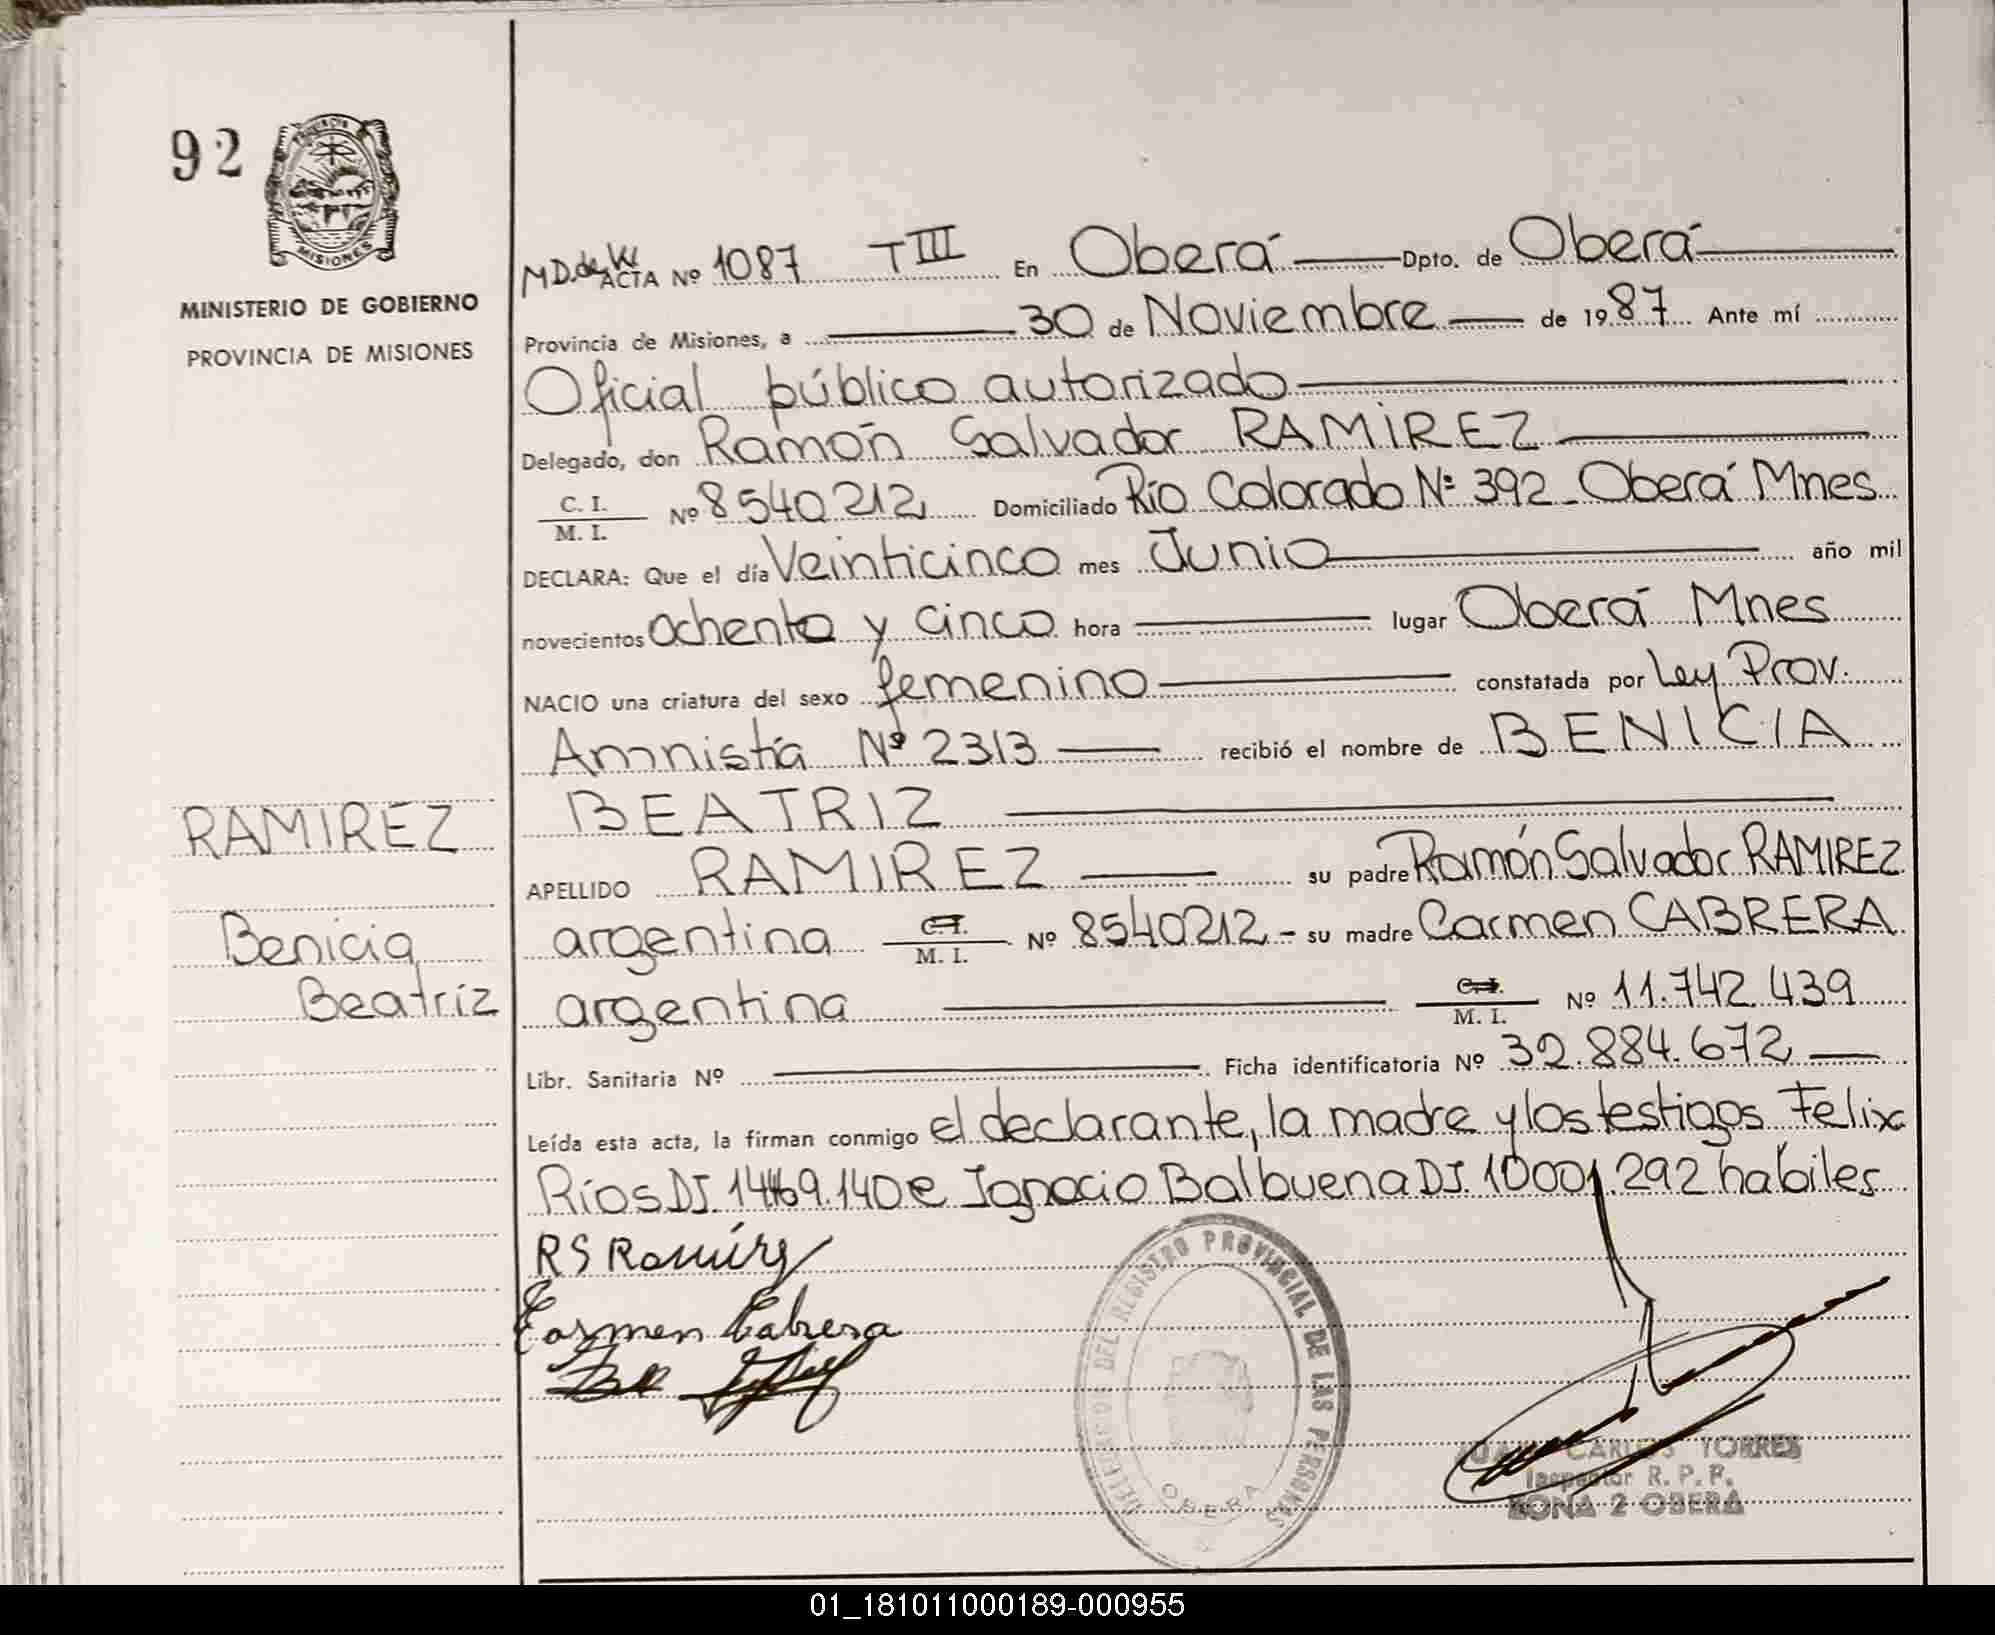 92
PROVINCIA
MISIONES
MINISTERIO DE GOBIERNO
PROVINCIA DE MISIONES
ACTA Nº 1087 TIII En Oberá Dpto. de Oberá
Provincia de Misiones, a 30 de Noviembre de 1987 Ante mí
Oficial público autorizado
Delegado, don Ramón Salvador RAMIREZ
C. I.
M. I. Nº 8540212 Domiciliado Río Colorado Nº 392 - Oberá Mnes
DECLARA: Que el día Veinticinco mes Junio año mil
novecientos ochenta y cinco hora lugar Oberá Mnes
NACIO una criatura del sexo femenino constatada por Ley Prov.
Amnistía Nº 2313 recibió el nombre de BENICIA
BEATRIZ
APELLIDO RAMIREZ su padre Ramón Salvador RAMIREZ
argentina C. I. M. I. Nº 8540212 - su madre Carmen CABRERA
argentina C. I. M. I. Nº 11.742.439
Libr. Sanitaria Nº Ficha identificatoria Nº 32.884.672
Leída esta acta, la firman conmigo el declarante, la madre y los testigos Felix
Ríos DJ. 140 e Ignacio Balbuena DJ. 10001.292 habiles
RAMIREZ
Benicia
Beatríz
RS Ramírez
Carmen Cabrera
DELEGACION DEL REGISTRO PROVINCIAL DE LAS PERSONAS
OBERA
JUAN CARLOS TORRES
Inspector R. P. P.
ZONA 2 OBERA
01_181011000189-000955